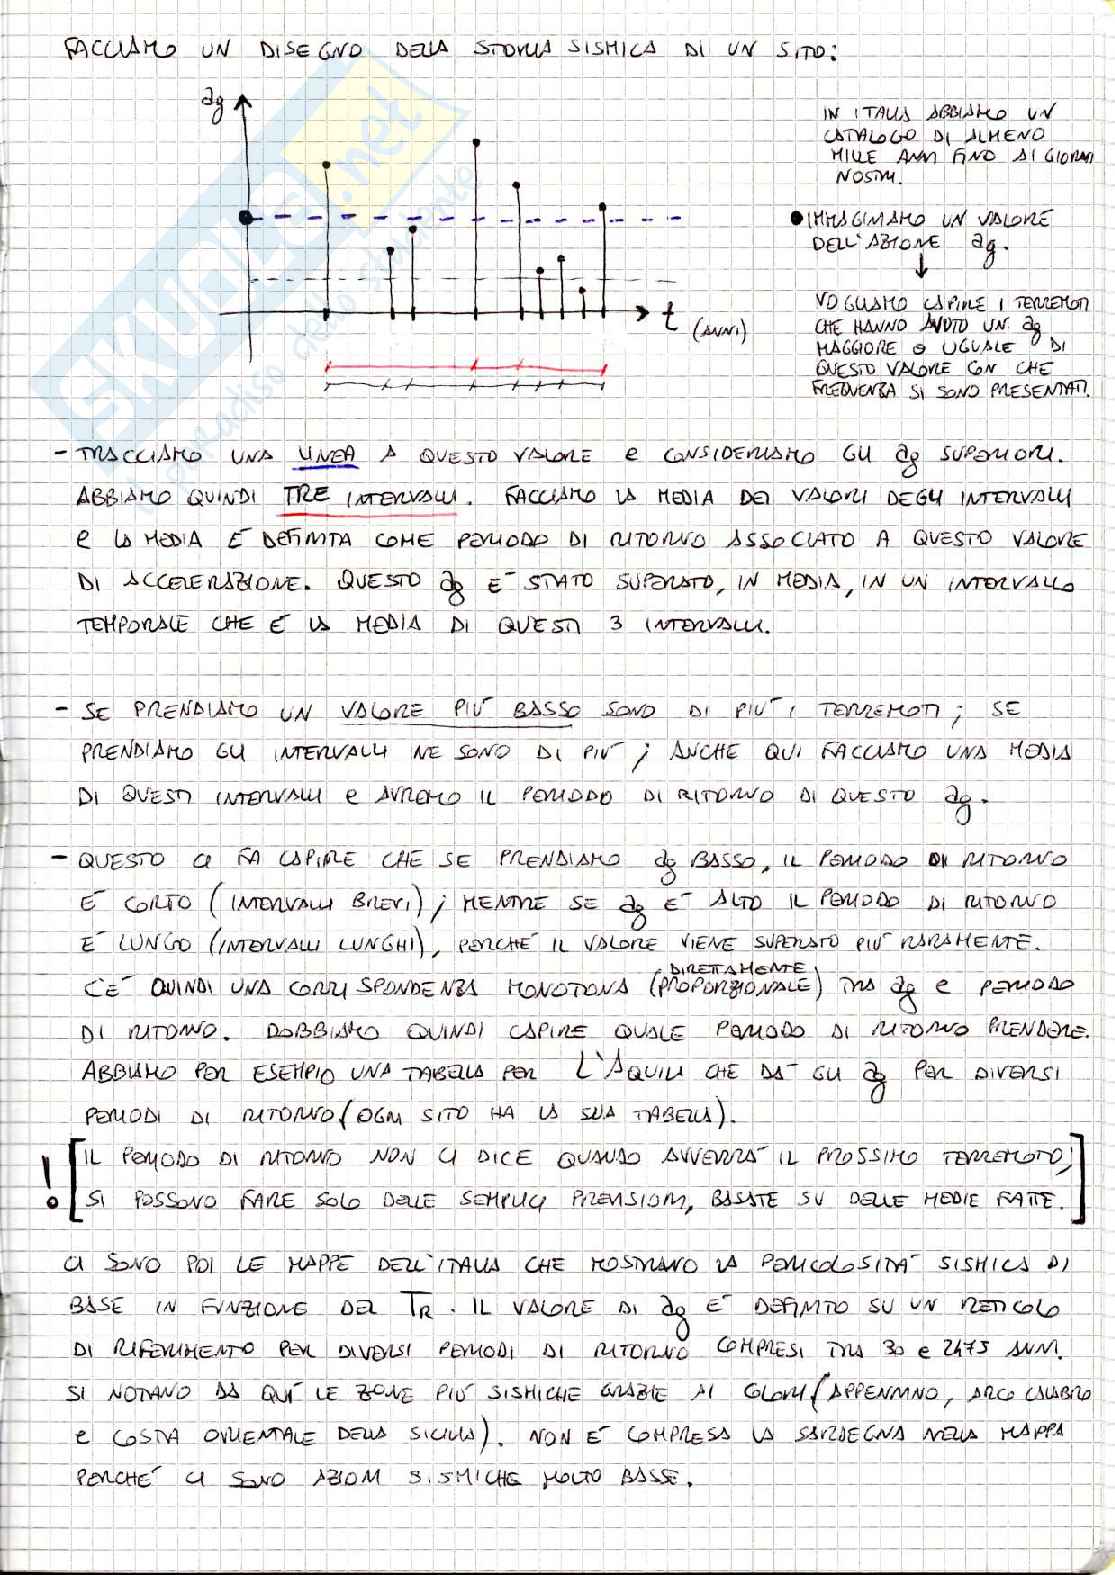 FACCIAMO UN DISEGNO DELLA STORIA SISMICA DI UN SITO:
ag
IN ITALIA ABBIAMO UN
CATALOGO DI ALMENO
MILLE ANNI FINO AI GIORNI
NOSTRI.
IMMAGINIAMO UN VALORE
DELL'AZIONE ag.
VOGLIAMO CAPIRE I TERREMOTI
CHE HANNO AVUTO UN ag
MAGGIORE O UGUALE DI
QUESTO VALORE CON CHE
FREQUENZA SI SONO PRESENTATI.
t (ANNI)
SKUOLA.net
il paradiso dello studente
- TRACCIAMO UNA LINEA A QUESTO VALORE e CONSIDERIAMO GLI ag SUPERIORI.
ABBIAMO QUINDI TRE INTERVALLI. FACCIAMO LA MEDIA DEI VALORI DEGLI INTERVALLI
e LA MEDIA E' DEFINITA COME PERIODO DI RITORNO ASSOCIATO A QUESTO VALORE
DI ACCELERAZIONE. QUESTO ag E' STATO SUPERATO, IN MEDIA, IN UN INTERVALLO
TEMPORALE CHE E' LA MEDIA DI QUESTI 3 INTERVALLI.
- SE PRENDIAMO UN VALORE PIU' BASSO SONO DI PIU' I TERREMOTI; SE
PRENDIAMO GLI INTERVALLI NE SONO DI PIU'; ANCHE QUI FACCIAMO UNA MEDIA
DI QUESTI INTERVALLI e AVREMO IL PERIODO DI RITORNO DI QUESTO ag.
- QUESTO CI FA CAPIRE CHE SE PRENDIAMO ag BASSO, IL PERIODO DI RITORNO
E' CORTO (INTERVALLI BREVI); MENTRE SE ag E' ALTO IL PERIODO DI RITORNO
E' LUNGO (INTERVALLI LUNGHI), PERCHE' IL VALORE VIENE SUPERATO PIU' RARAMENTE.
C'E' QUINDI UNA CORRISPONDENZA MONOTONA (DIRETTAMENTE PROPORZIONALE) TRA ag e PERIODO
DI RITORNO. DOBBIAMO QUINDI CAPIRE QUALE PERIODO DI RITORNO PRENDERE.
ABBIAMO PER ESEMPIO UNA TABELLA PER L'AQUILA CHE DA' GLI ag PER DIVERSI
PERIODI DI RITORNO (OGNI SITO HA LA SUA TABELLA).
! [IL PERIODO DI RITORNO NON CI DICE QUANDO AVVERRA' IL PROSSIMO TERREMOTO;
SI POSSONO FARE SOLO DELLE SEMPLICI PREVISIONI, BASATE SU DELLE MEDIE FATTE.]
CI SONO POI LE MAPPE DELL'ITALIA CHE MOSTRANO LA PERICOLOSITA' SISMICA DI
BASE IN FUNZIONE DEL TR. IL VALORE DI ag E' DEFINITO SU UN RETICOLO
DI RIFERIMENTO PER DIVERSI PERIODI DI RITORNO COMPRESI TRA 30 e 2475 ANNI.
SI NOTANO DA QUI' LE ZONE PIU' SISMICHE GRAZIE AI COLORI (APPENNINO, ARCO CALABRO
e COSTA ORIENTALE DELLA SICILIA). NON E' COMPRESA LA SARDEGNA NELLA MAPPA
PERCHE' CI SONO AZIONI SISMICHE MOLTO BASSE.